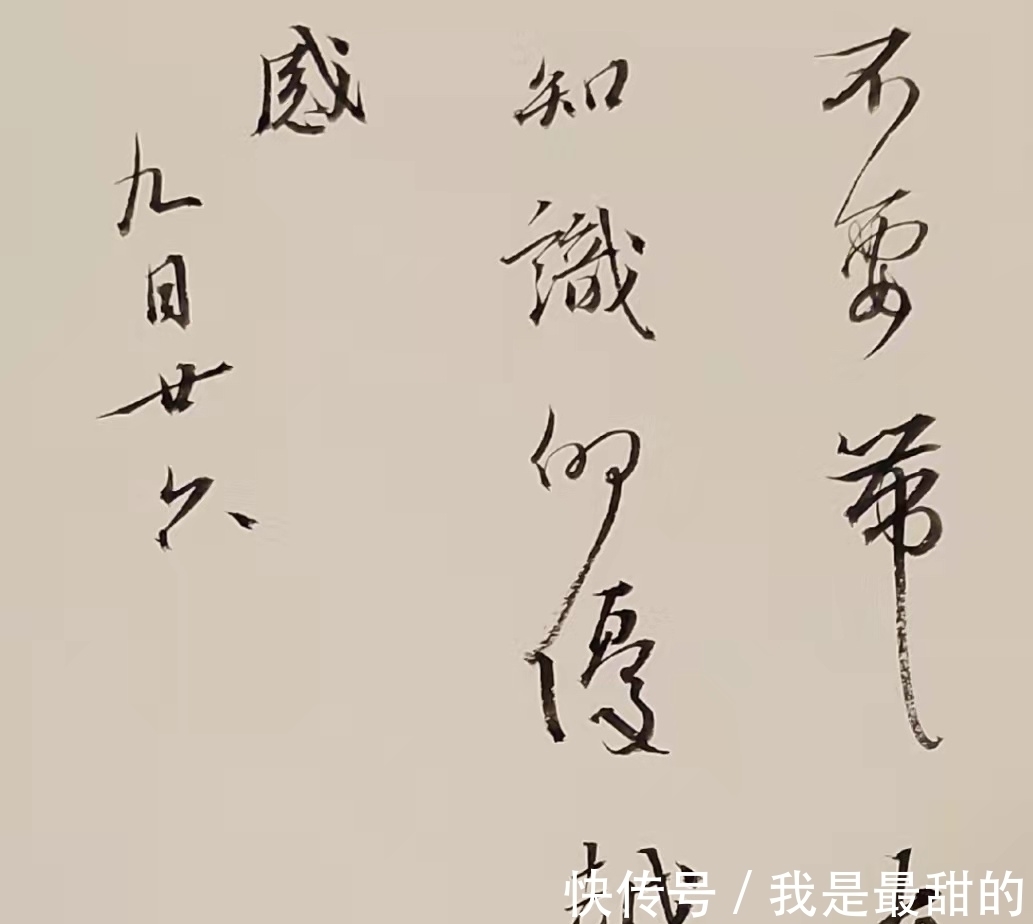 不要带
知識的優越
感
九月廿六
快传号 / 我是最甜的